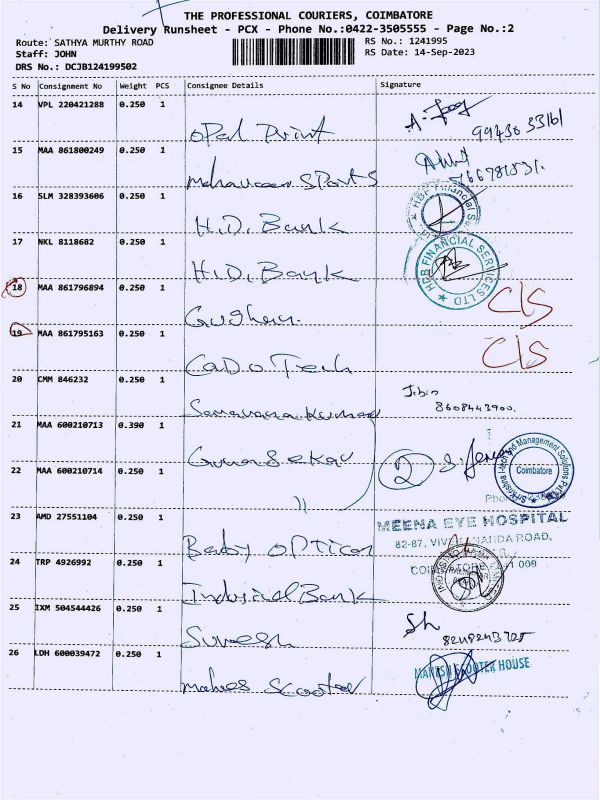 THE PROFESSIONAL COURIERS, COIMBATORE
Delivery Runsheet - PCX - Phone No.:0422-3505555 - Page No.:2
Route: SATHYA MURTHY ROAD RS No.: 1241995
Staff: JOHN RS Date: 14-Sep-2023
DRS No.: DCJB124199502
S No Consignment No Weight PCS Consignee Details Signature
14 VPL 220421288 0.250 1
Opel Print 99436 33161
15 MAA 861800249 0.250 1
Mahaveer Sports
16 SLM 328393606 0.250 1
H.D. Bank
17 NKL 8118682 0.250 1
H.D. Bank
HBF FINANCIAL SERVICES LTD
18 MAA 861796894 0.250 1
C/S
19 MAA 861795163 0.250 1
CADO Tech C/S
20 CMM 846232 0.250 1
Saravana Kumar Jibin
8608443900.
21 MAA 600210713 0.390 1
Guna Sekar 2
Coimbatore
22 MAA 600210714 0.250 1
〃
23 AMD 27551104 0.250 1
MEENA EYE HOSPITAL
82-87, ROAD,
24 TRP 4926992 0.250 1
Indusind Bank
25 IXM 504544426 0.250 1
Suresh
26 LDH 600039472 0.250 1
Mahes Scooter
MAHESH SCOOTER HOUSE